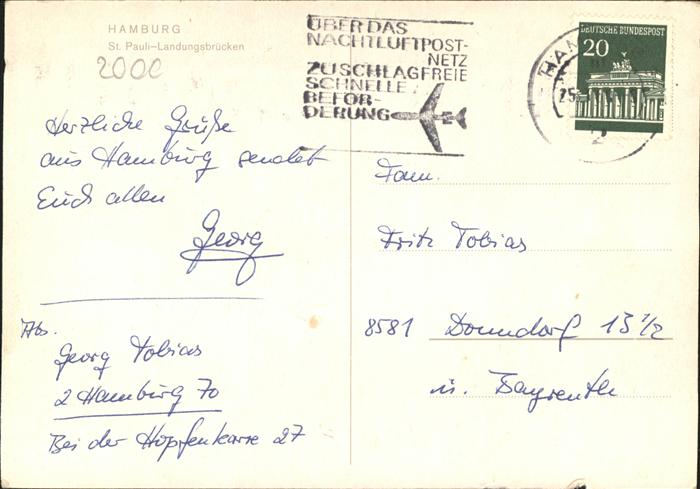 HAMBURG
St. Pauli-Landungsbrücken
2000
Herzliche Grüße
aus Hamburg sendet
Euch allen
Georg
Abs.
Georg Tobias
2 Hamburg 70
Bei der Hopfenkarre 27
ÜBER DAS
NACHTLUFTPOST-
NETZ
ZUSCHLAGFREIE
SCHNELLE
BEFÖR-
DERUNG
HAM
25
2
DEUTSCHE BUNDESPOST
20
Fam.
Fritz Tobias
8581 Donndorf 13 1/2
ü. Bayreuth